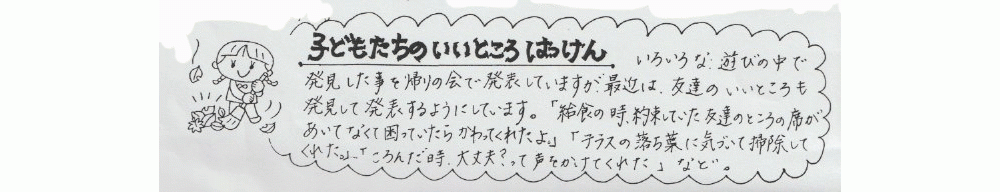 子どもたちのいいところはっけん
いろいろな遊びの中で
発見した事を帰りの会で発表していますが、最近は、友達のいいところも
発見して発表するようにしています。「給食の時、約束していた友達のところの席が
あいてなくて困っていたらかわってくれたよ。」「テラスの落ち葉に気づいて掃除して
くれた。」「ころんだ時、大丈夫?って声をかけてくれた」など。